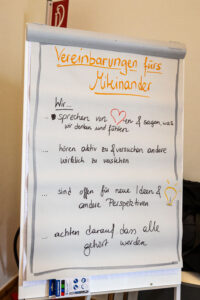 Vereinbarungen fürs
Miteinander
Wir...
sprechen von ♡en & sagen, was
wir denken und fühlen
... hören aktiv zu & versuchen andere
wirklich zu verstehen
... sind offen für neue Ideen &
andere Perspektiven
... achten darauf dass alle
gehört werden